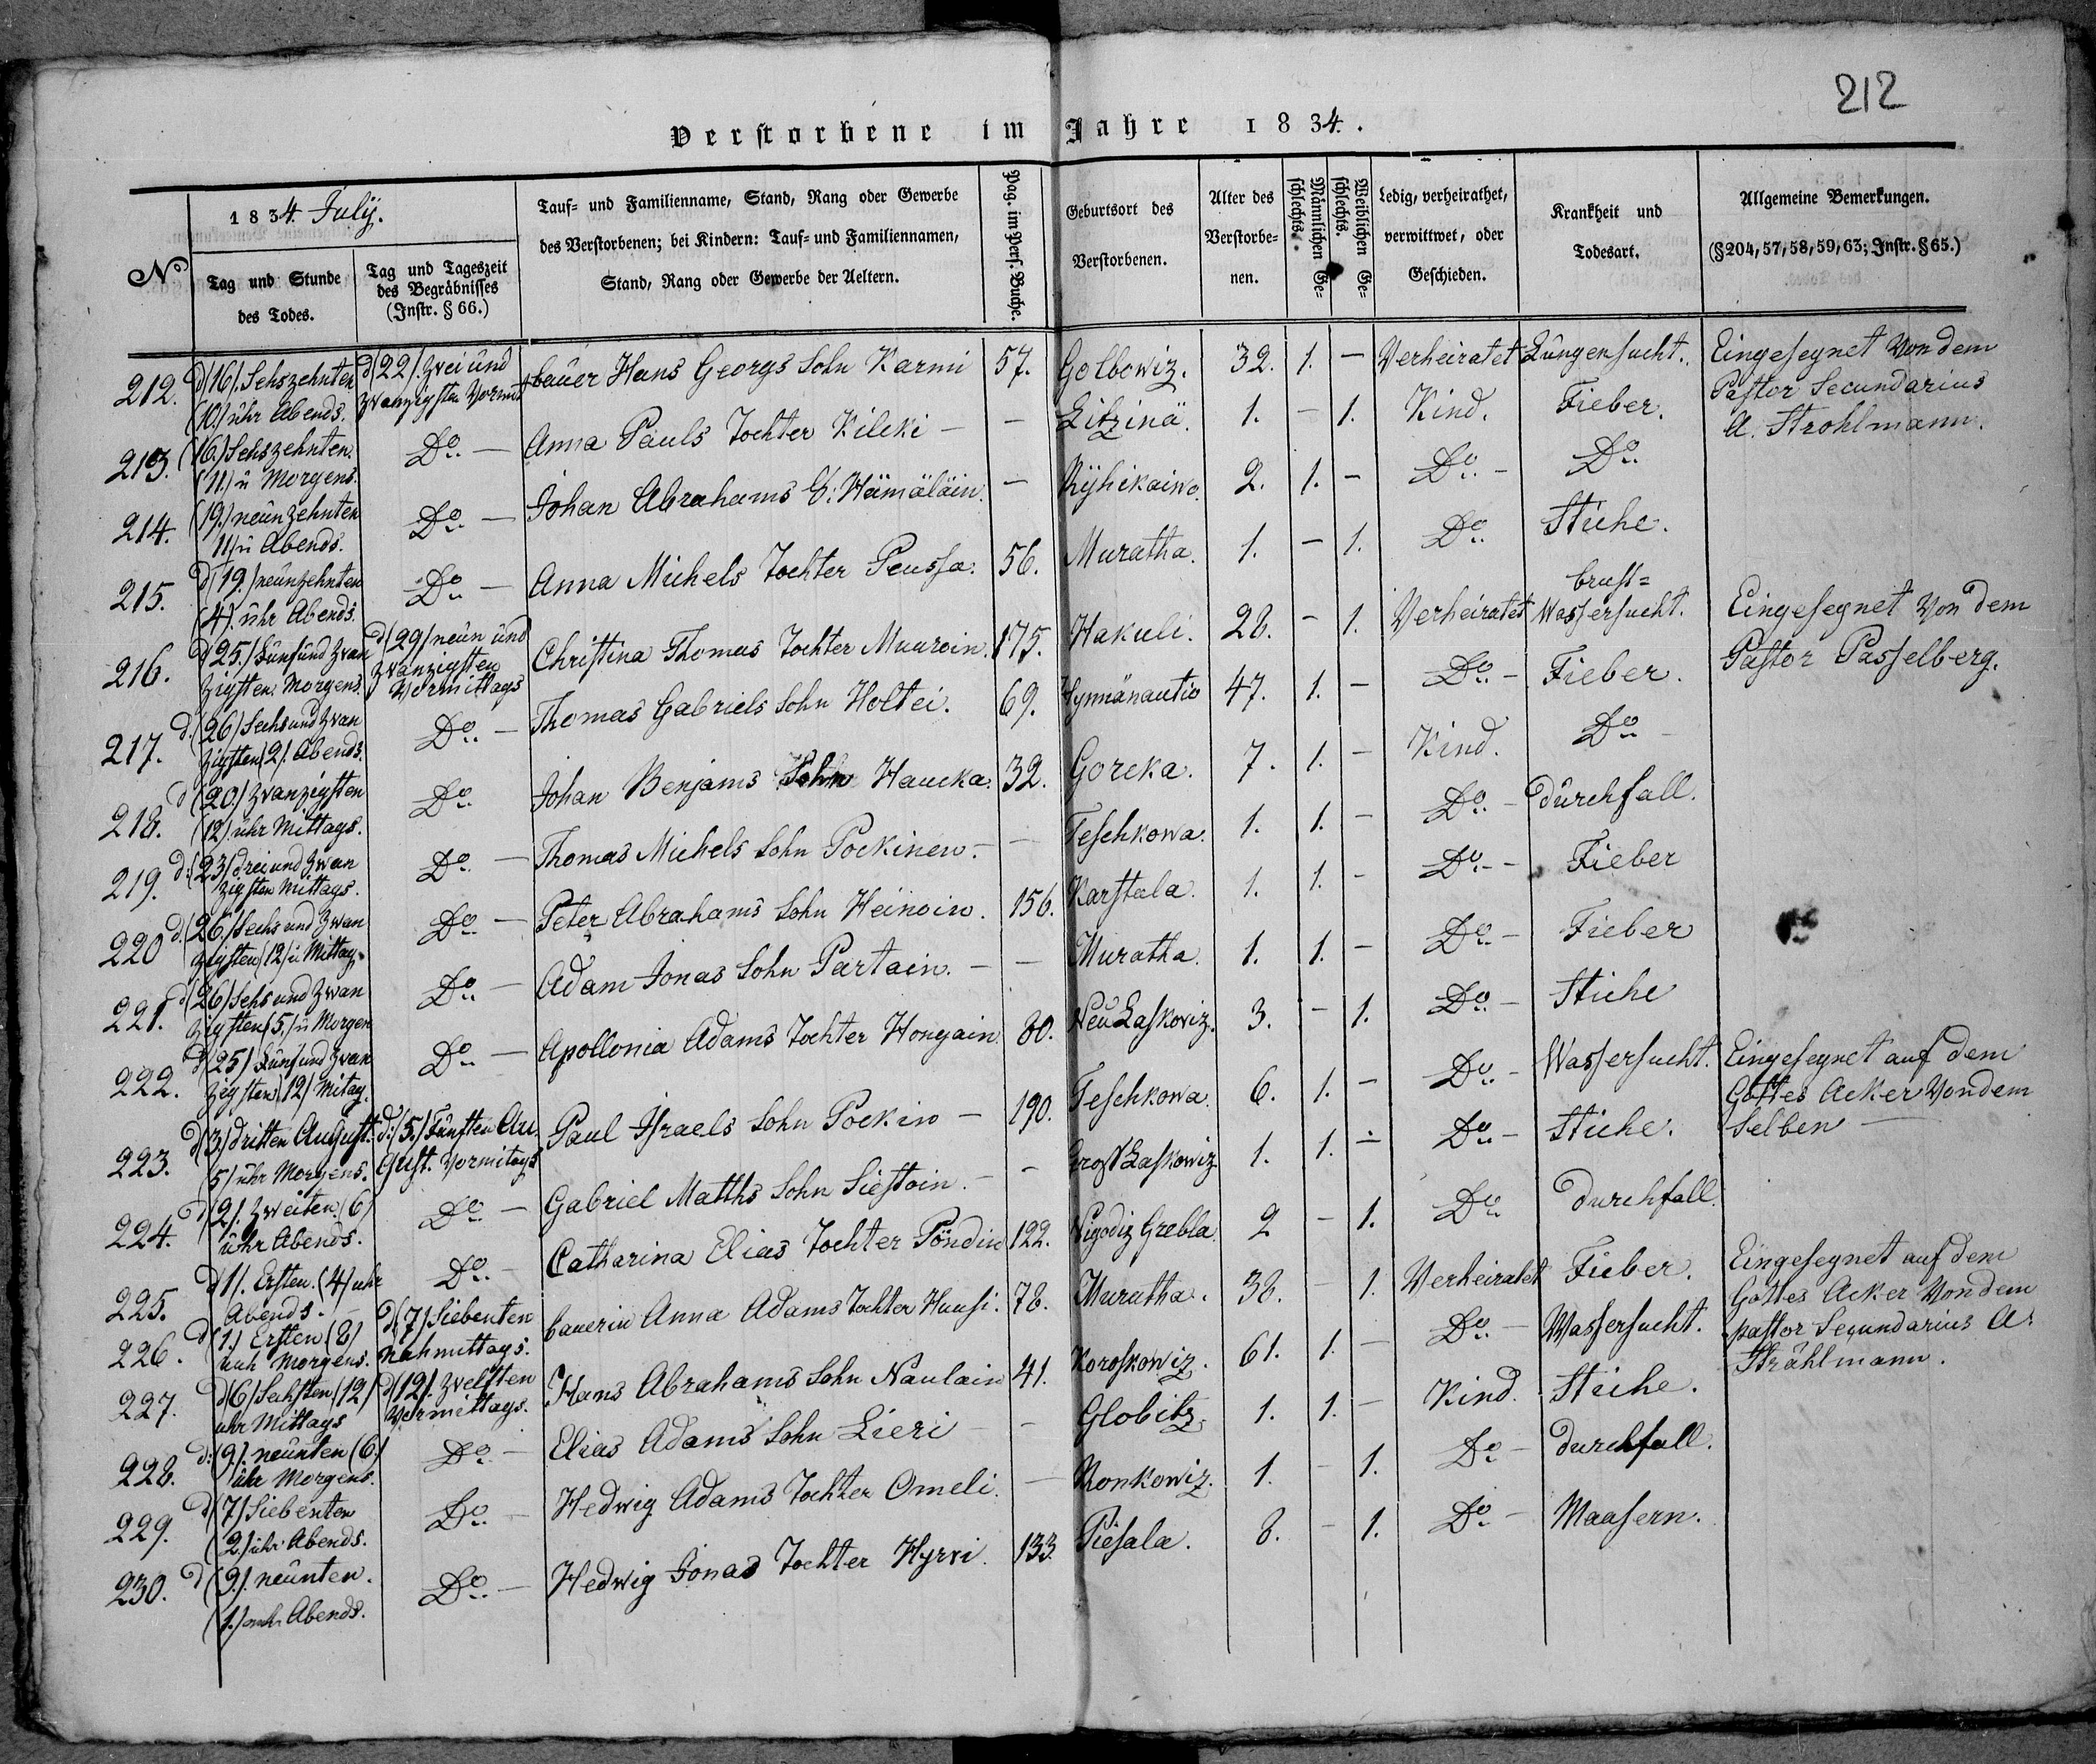 212
Verstorbene im Jahre 1834.
No
1834. Julÿ.
Tag und Stunde des Todes.
Tag und Tageszeit des Begräbnisses (Instr. § 66.)
Tauf- und Familienname, Stand, Rang oder Gewerbe des Verstorbenen; bei Kindern: Tauf- und Familiennamen, Stand, Rang oder Gewerbe der Aeltern.
Pag. im Pers. Buche.
Geburtsort des Verstorbenen.
Alter des Verstorbe-nen.
Männlichen Ge-schlechts.
Weiblichen Ge-schlechts.
Ledig, verheirathet, verwittwet, oder Geschieden.
Krankheit und Todesart.
Allgemeine Bemerkungen. (§ 204, 57, 58, 59, 63; Instr. § 65.)
212. d (16). Sehszehnten (10.) uhr Abends. d (22). Zvei und zvanzigsten Vormit bauer Hans Georgs Sohn Karmi 57. Golbowiz. 32. 1. — Verheiratet Lungensucht. Eingesegnet Von dem Pastor Secundarius A. Strohlmann.
213. (16.) Sehszehnten. (11.) u Morgens. Do. — Anna Pauls Tochter Kileki — — Litzinä. 1. — 1. Kind. Fieber.
214. (19.) neunzehnten 11) u Abends. Do — Johan Abrahams S: Hämäläin. — Ryhikaiwo. 2. 1. — Do. — Do.
215. d (19.) neunzehnten (4). uhr Abends. Do — Anna Michels Tochter Peussa. 56. Muratha. 1. — 1. Do. Stiche.
216. d 25.) Funfund zvan zigsten Morgens. d (29) neun und zvanzigsten Vormittags Christina Thomas Tochter Muuroin. 175. Hakuli. 28. — 1. Verheiratet brust= Wassersucht. Eingesegnet Von dem Pastor Passelberg.
217. d. (26) Sechs und zvan zigsten (2). Abends. Do. — Thomas Gabriels Sohn Holtei. 69. Hynnänautio 47. 1. — Do. — Fieber.
218. d (20.) zvanzigsten (12). uhr Mittags. Do. Johan Benjams Sohn Haucka. 32. Goreka. 7. 1. — Kind. Do —
219. d: (23) drei und zwan zigsten Mittags. Do. — Thomas Michels Sohn Pockinen. — — Teschkowa. 1. 1. — Do. — durchfall.
220 d. (26.) Sechs und zwan zigsten (12) u Mittag. Do — Peter Abrahams Sohn Heinoin. 156. Karstala. 1. 1. — Do. — Fieber
221. d (26) Sehs und zwan zigsten (5.) u Morgen Do — Adam Jonas Sohn Partain. — — Muratha. 1. 1. — Do. — Fieber
222. d (25) Funfund zvan zigsten (12) Mitag. Do — Apollonia Adams Tochter Hongain. 80. Neu Laskowiz. 3. — 1. Do. — Stiche
223. d (3.) dritten August. 5) uhr Morgens. d: (5.) Funften Au gust. Vormitags Paul Israels Sohn Pockin — 190. Teschkowa. 6. 1. — Do. — Wassersucht. Eingesegnet auf dem Gottes Acker Von dem Selben —
224. d (2). Zweiten (6) uhr Abends. Do — Gabriel Matths Sohn Siestoin. — — Gross Laskowiz. 1. 1. — Do — Stiche.
225. d 1). Ersten. (4) uhr Abends. — Do. — Catharina Elias Tochter Pöndin 122. Wigodiz Grebla. 2 — 1. Do. durchfall.
226. d (1.) Ersten (8) uuh Morgens. d (7) Siebenten Nahmittags. bauerin Anna Adams Tochter Hausi. 78. Muratha. 38. — 1. Verheiratet Fieber. Eingesegnet auf dem Gottes Acker Von dem pastor Secundarius A. Strählmann.
227. d (6) Sechsten (12) uhr Mittags d (12). Zvelften Vormittags. Hans Abrahams Sohn Naulain 41. Koroskowiz. 61. 1. — Do. — Wassersucht.
228. d: (9). neunten (6.) uhr Morgens. Do — Elias Adams Sohn Lieri — Globitz. 1. 1. — Kind. Stiche.
229. d (7.) Siebenten 2.) uhr Abends. Do. — Hedwig Adams Tochter Omeli. — Ronkowiz. 1. — 1. Do — durchfall.
230. d (9.). neunten. (1.) Abends. Do — Hedwig Jonas Tochter Hyrvi. 133. Piesala. 8. — 1. Do — Maasern.